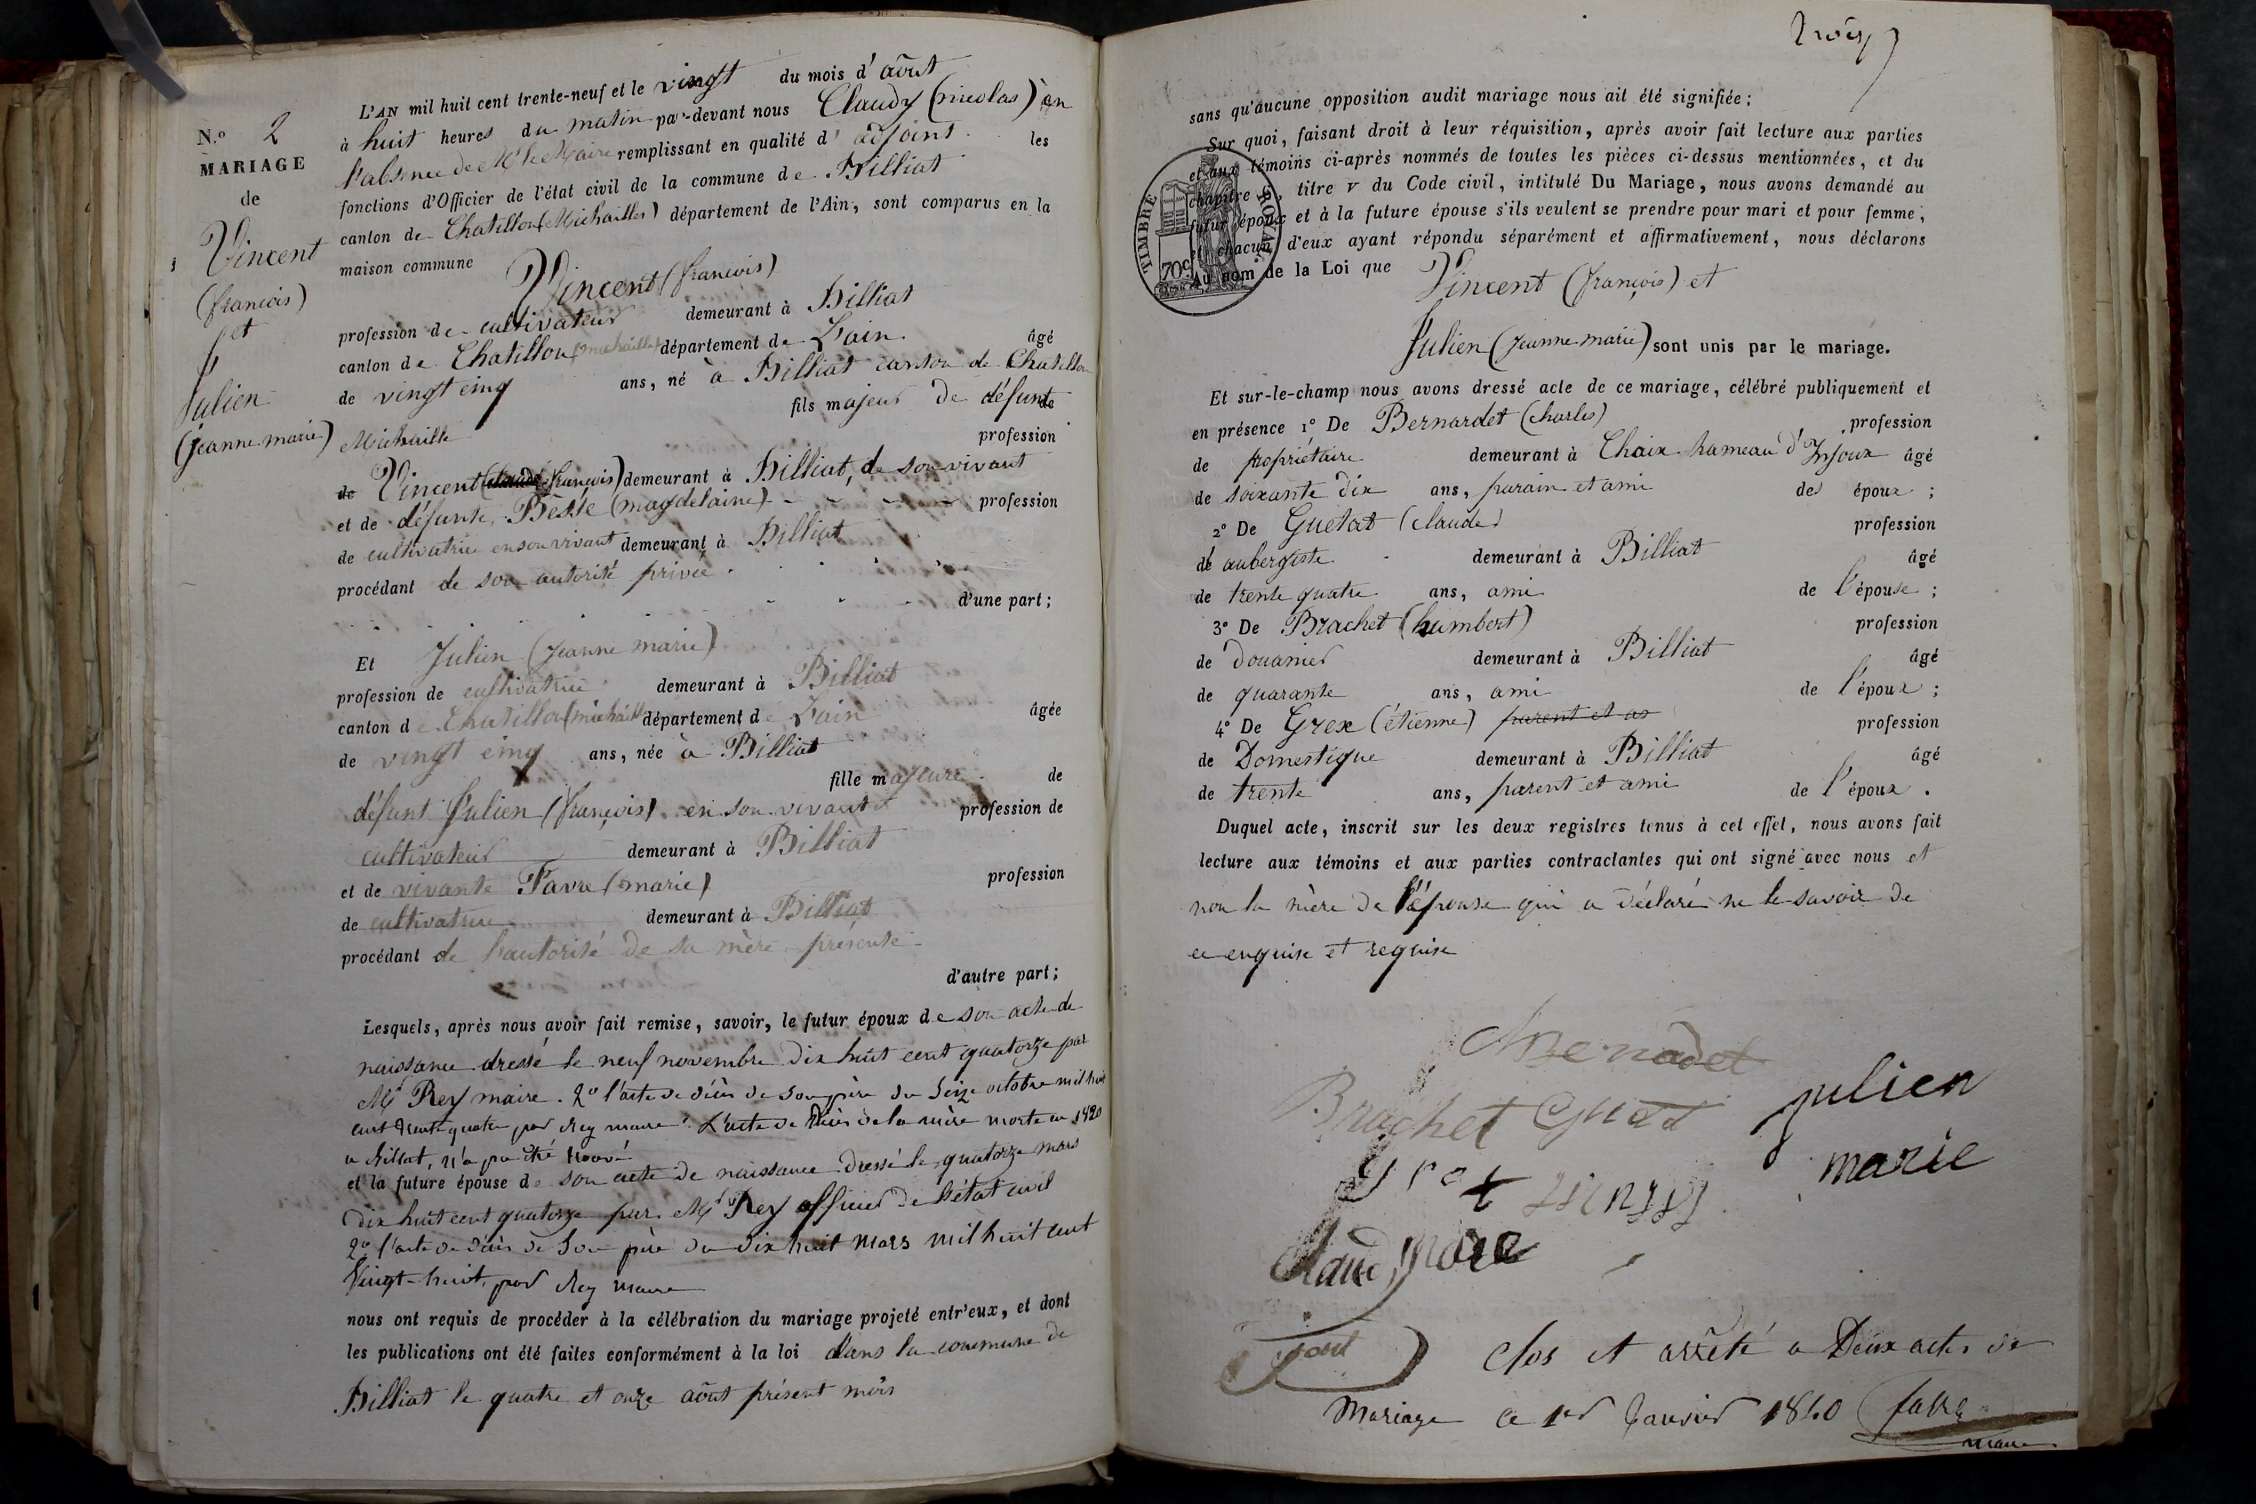 N.o 2
MARIAGE
de
Vincent
(françois)
et
Julien
(jeanne marie)
L'AN mil huit cent trente-neuf et le vingt du mois d'août
à huit heures du matin par-devant nous Claudy (nicolas) en
l'absence de Mr le Maire remplissant en qualité d'adjoint les
fonctions d'Officier de l'état civil de la commune de Billiat
canton de Chatillon (Michailles) département de l'Ain, sont comparus en la
maison commune Vincent (françois)
profession de cultivateur demeurant à Billiat
canton de Chatillon (michailles) département de L'ain âgé
de vingt cinq ans, né à Billiat canton de Chatillon
Michaille fils majeur de défunt de
profession
de Vincent (claude françois) demeurant à Billiat, de son vivant
et de défunte Beste (magdelaine) profession
de cultivatrice en son vivant demeurant à Billiat
procédant de son autorité privée
d'une part;
Et Julien (jeanne marie)
profession de cultivatrice demeurant à Billiat
canton de Chatillon (michaille) département de L'ain âgée
de vingt cinq ans, née à Billiat
fille majeure de
défunt Julien (françois) en son vivant profession de
cultivateur demeurant à Billiat
et de vivante Favre (marie) profession
de cultivatrice demeurant à Billiat
procédant de l'autorité de sa mère présente
d'autre part;
Lesquels, après nous avoir fait remise, savoir, le futur époux de son acte de
naissance dressé le neuf novembre dix huit cent quatorze par
Mr Rey maire. 2o l'acte de décès de son père du seize octobre mil huit
cent trente quatre par Rey maire. L'acte de décès de la mère morte en 1820
a Billiat, n'a pu être trouvé
et la future épouse de son acte de naissance dressé le quatorze mars
dix huit cent quatorze par Mr Rey officier de l'état civil
2o l'acte de décès de son père du dix huit mars mil huit cent
vingt-huit, par Rey maire
nous ont requis de procéder à la célébration du mariage projeté entr'eux, et dont
les publications ont été faites conformément à la loi dans la commune de
Billiat le quatre et onze août présent mois
trois
sans qu'aucune opposition audit mariage nous ait été signifiée;
Sur quoi, faisant droit à leur réquisition, après avoir fait lecture aux parties
et aux témoins ci-après nommés de toutes les pièces ci-dessus mentionnées, et du
chapitre titre V du Code civil, intitulé Du Mariage, nous avons demandé au
futur époux et à la future épouse s'ils veulent se prendre pour mari et pour femme;
et chacun d'eux ayant répondu séparément et affirmativement, nous déclarons
Au nom de la Loi que Vincent (françois) et
TIMBRE ROYAL.
70c
Julien (jeanne marie) sont unis par le mariage.
Et sur-le-champ nous avons dressé acte de ce mariage, célébré publiquement et
en présence 1° De Bernardet (charles) profession
de propriétaire demeurant à Chaix hameau d'Injoux âgé
de soixante dix ans, parain et ami de époux;
2° De Guetat (claude) profession
de aubergiste demeurant à Billiat âgé
de trente quatre ans, ami de l'épouse;
3° De Brachet (humbert) profession
de douanier demeurant à Billiat âgé
de quarante ans, ami de l'époux;
4° De Grex (étienne) parent et as profession
de Domestique demeurant à Billiat âgé
de trente ans, parent et ami de l'époux.
Duquel acte, inscrit sur les deux registres tenus à cet effet, nous avons fait
lecture aux témoins et aux parties contractantes qui ont signé avec nous et
non la mère de l'épouse qui a déclaré ne le savoir de
ce enquise et requise
Brachet Guetat Julien
marie
Clos et arrêté a Deux actes de
Mariage ce 1er Janvier 1840 favre
maire